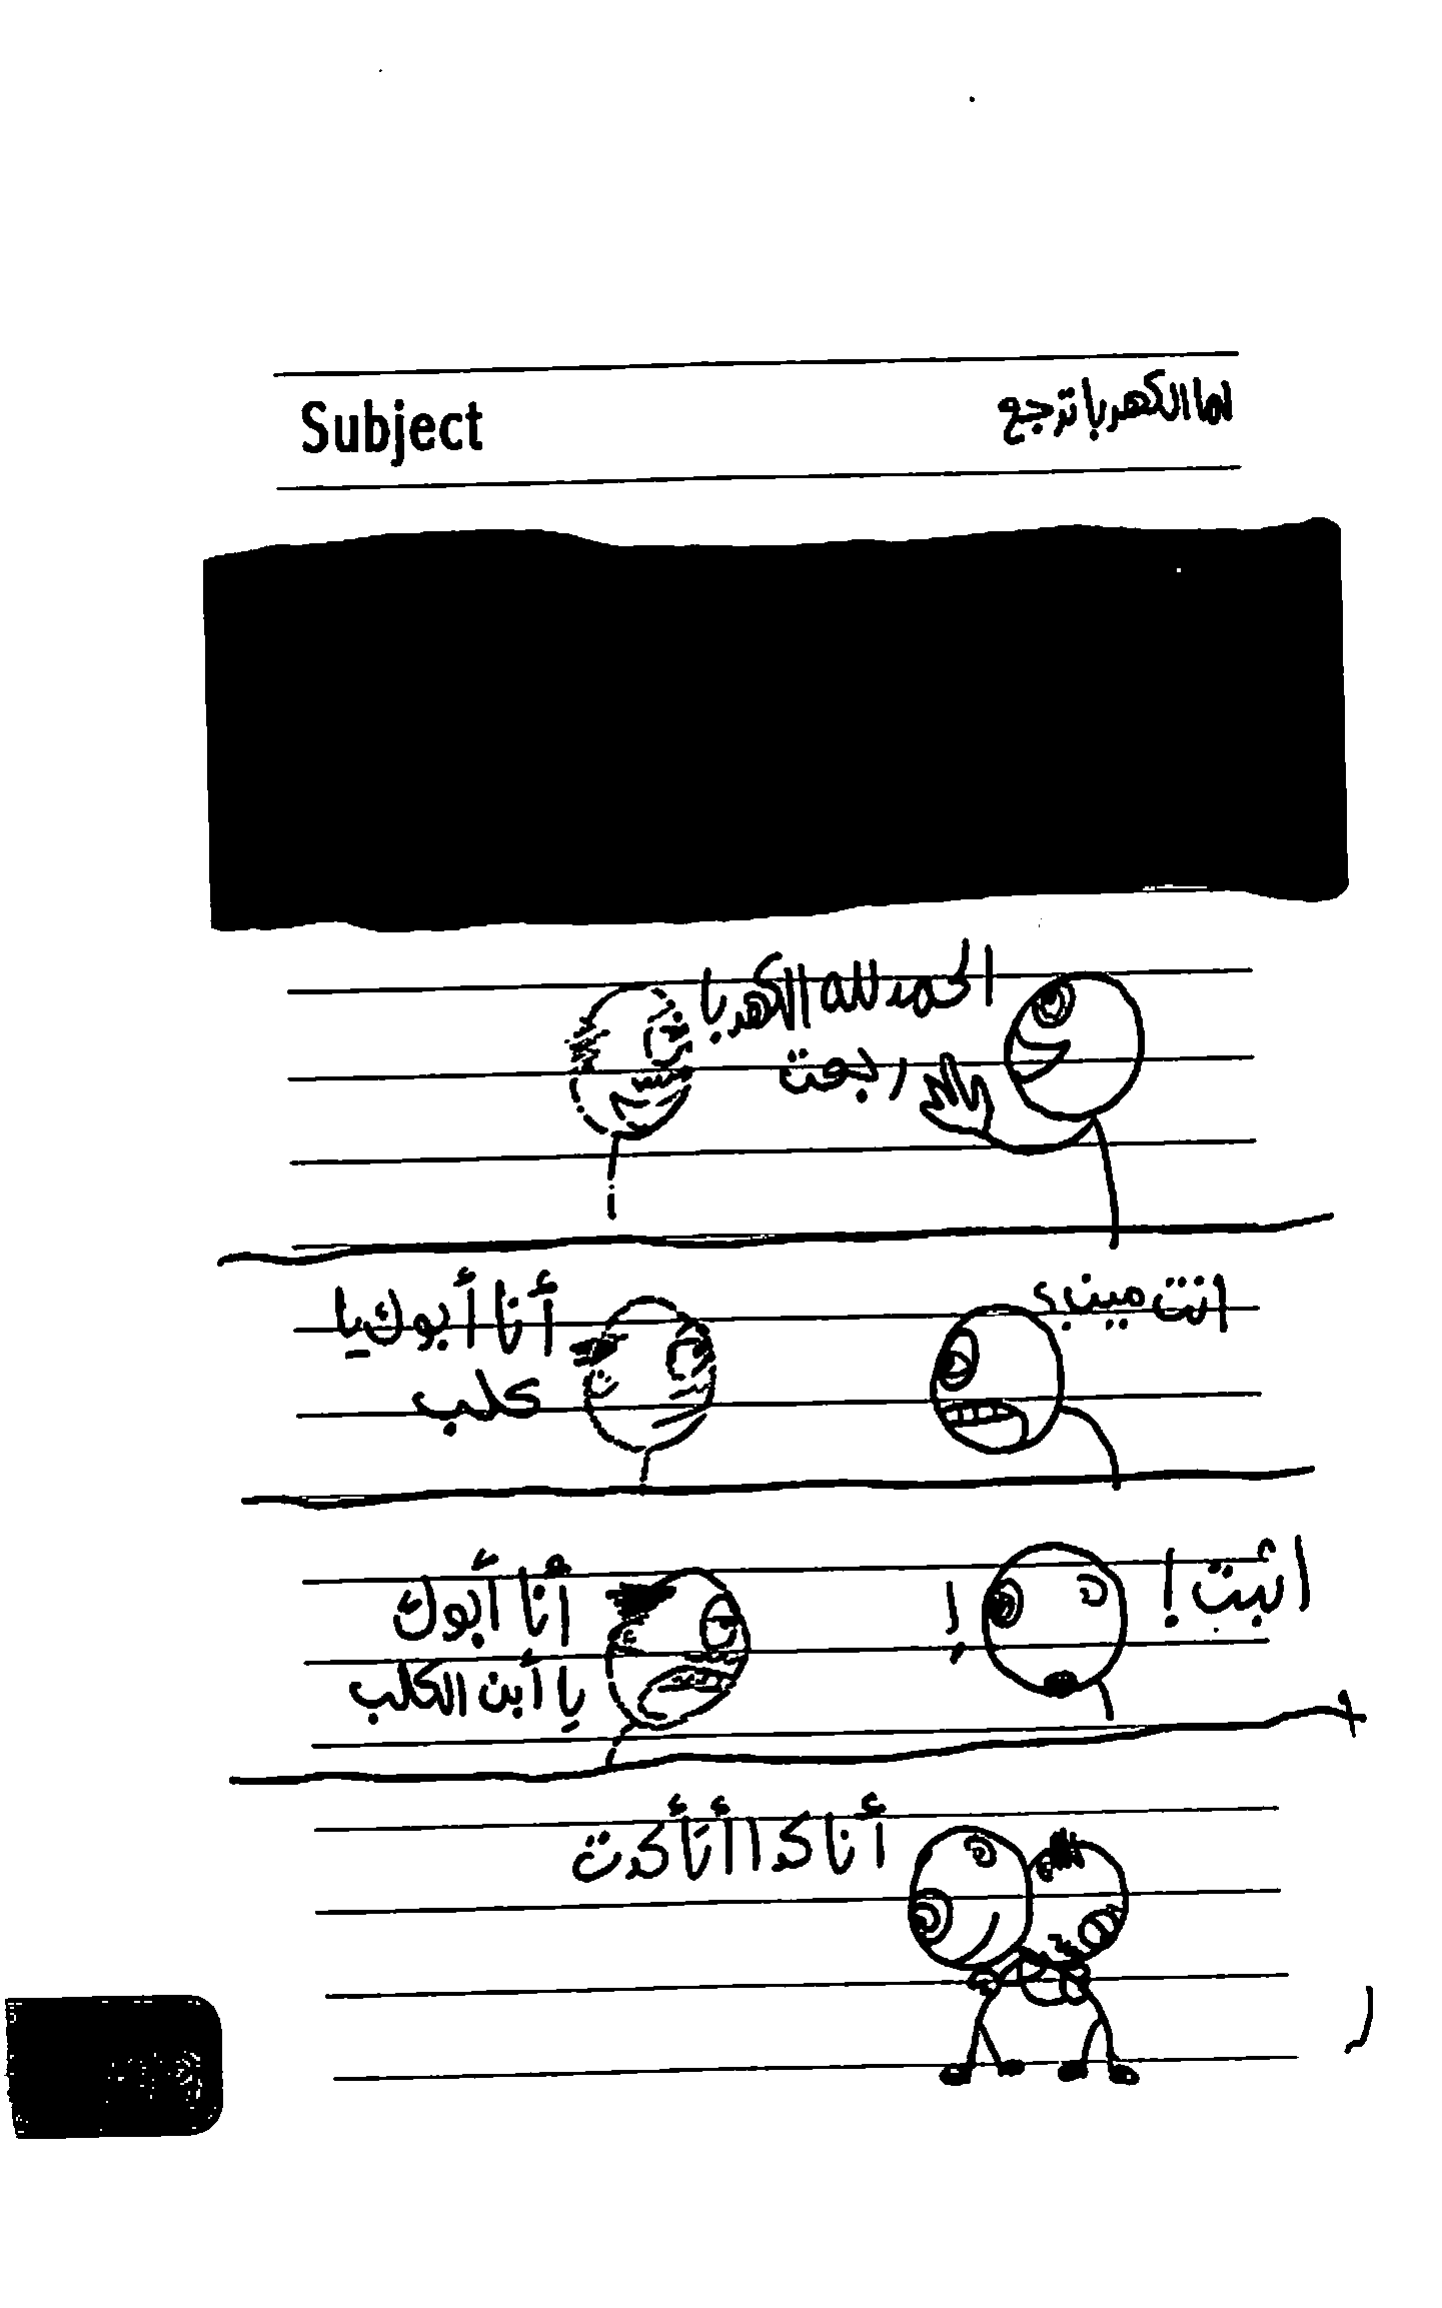 Subject
لما الكهربا ترجع
الحمد لله الكهربا
رجعت
انت مين؟
أنا أبوك يا
كلب
اثبت!
!
أنا أبوك
يا أبن الكلب
أنا كدا أتأكدت